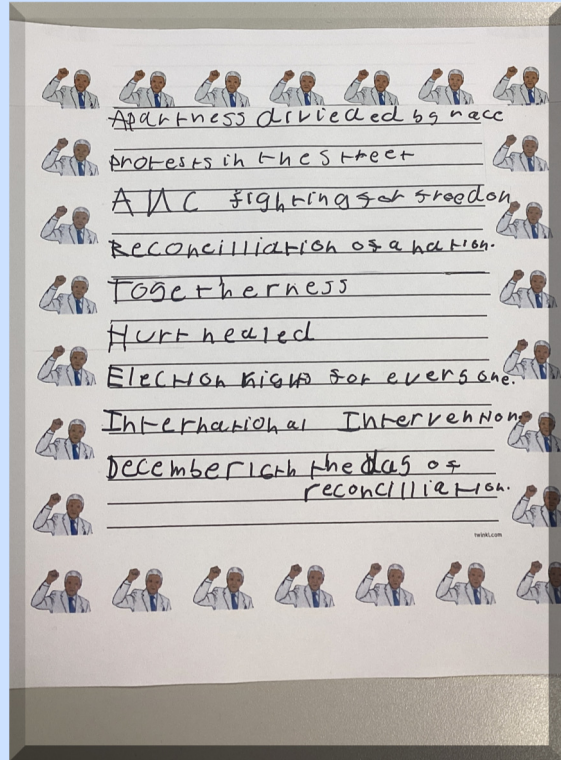 Apartness divieded by race
protests in the street
ANC fighting for freedom
Reconcilliation of a nation.
Togetherness
Hurt healed
Election rights for everyone.
International Intervention.
December 16th the day of
reconcilliation.
twinkl.com